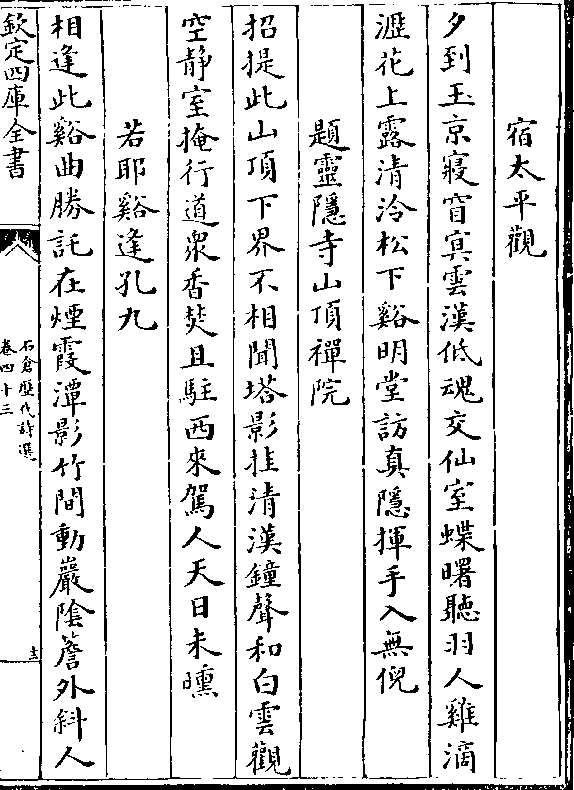 宿太平觀
夕到玉京寢窅冥雲漢低魂交仙室蝶曙聽羽人雞滴
瀝花上露清泠松下谿明堂訪真隱揮手入無倪
題靈隱寺山頂禪院
招提此山頂下界不相聞塔影挂清漢鐘聲和白雲觀
空静室掩行道衆香焚且駐西來駕人天日未曛
若耶谿逢孔九
相逢此谿曲勝託在煙霞潭影竹間動巖陰簷外斜人
欽定四庫全書
石倉歷代詩選
卷四十三
十三